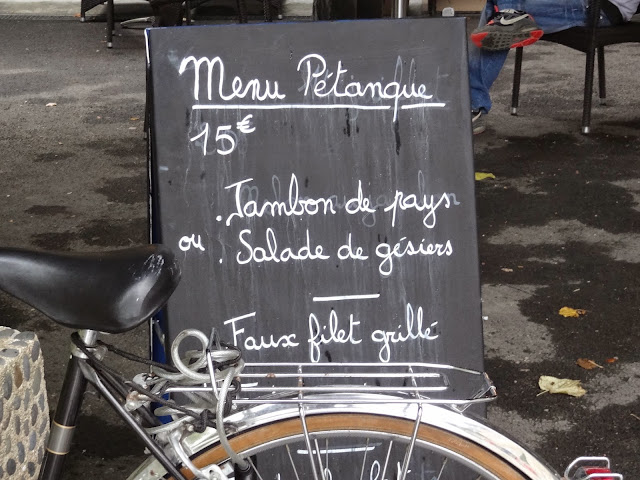 Menu Pétanque
15€
. Jambon de pays
ou . Salade de gésiers
Faux filet grillé